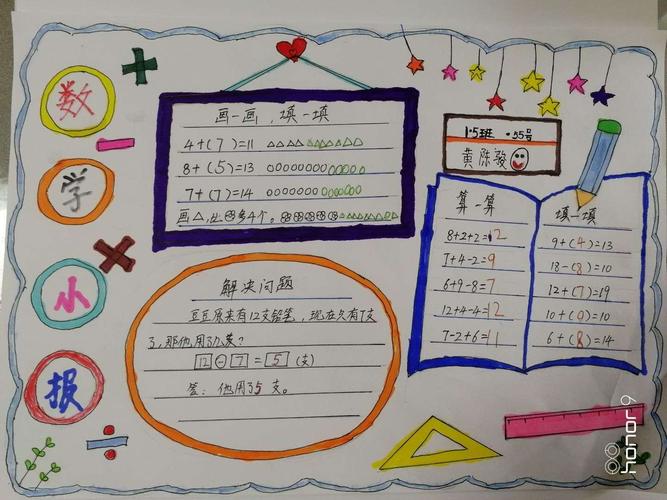 数
学
小
报
画一画，填一填
4+(7)=11 △△△△△△△△△△△
8+(5)=13 ○○○○○○○○○○○○○
7+(7)=14 ○○○○○○○○○○○○○○
画△,比 多4个。
1.5班 .55号
黄陈骏
算一算
8+2+2=12
7+4-2=9
6+9-8=7
12+4-4=12
7-2+6=11
填一填
9+(4)=13
18-(8)=10
12+(7)=19
10+(0)=10
6+(8)=14
解决问题
豆豆原来有12支铅笔，现在只有7支
了,那他用了几支?
12-7=5(支)
答：他用了5支。
honor 9